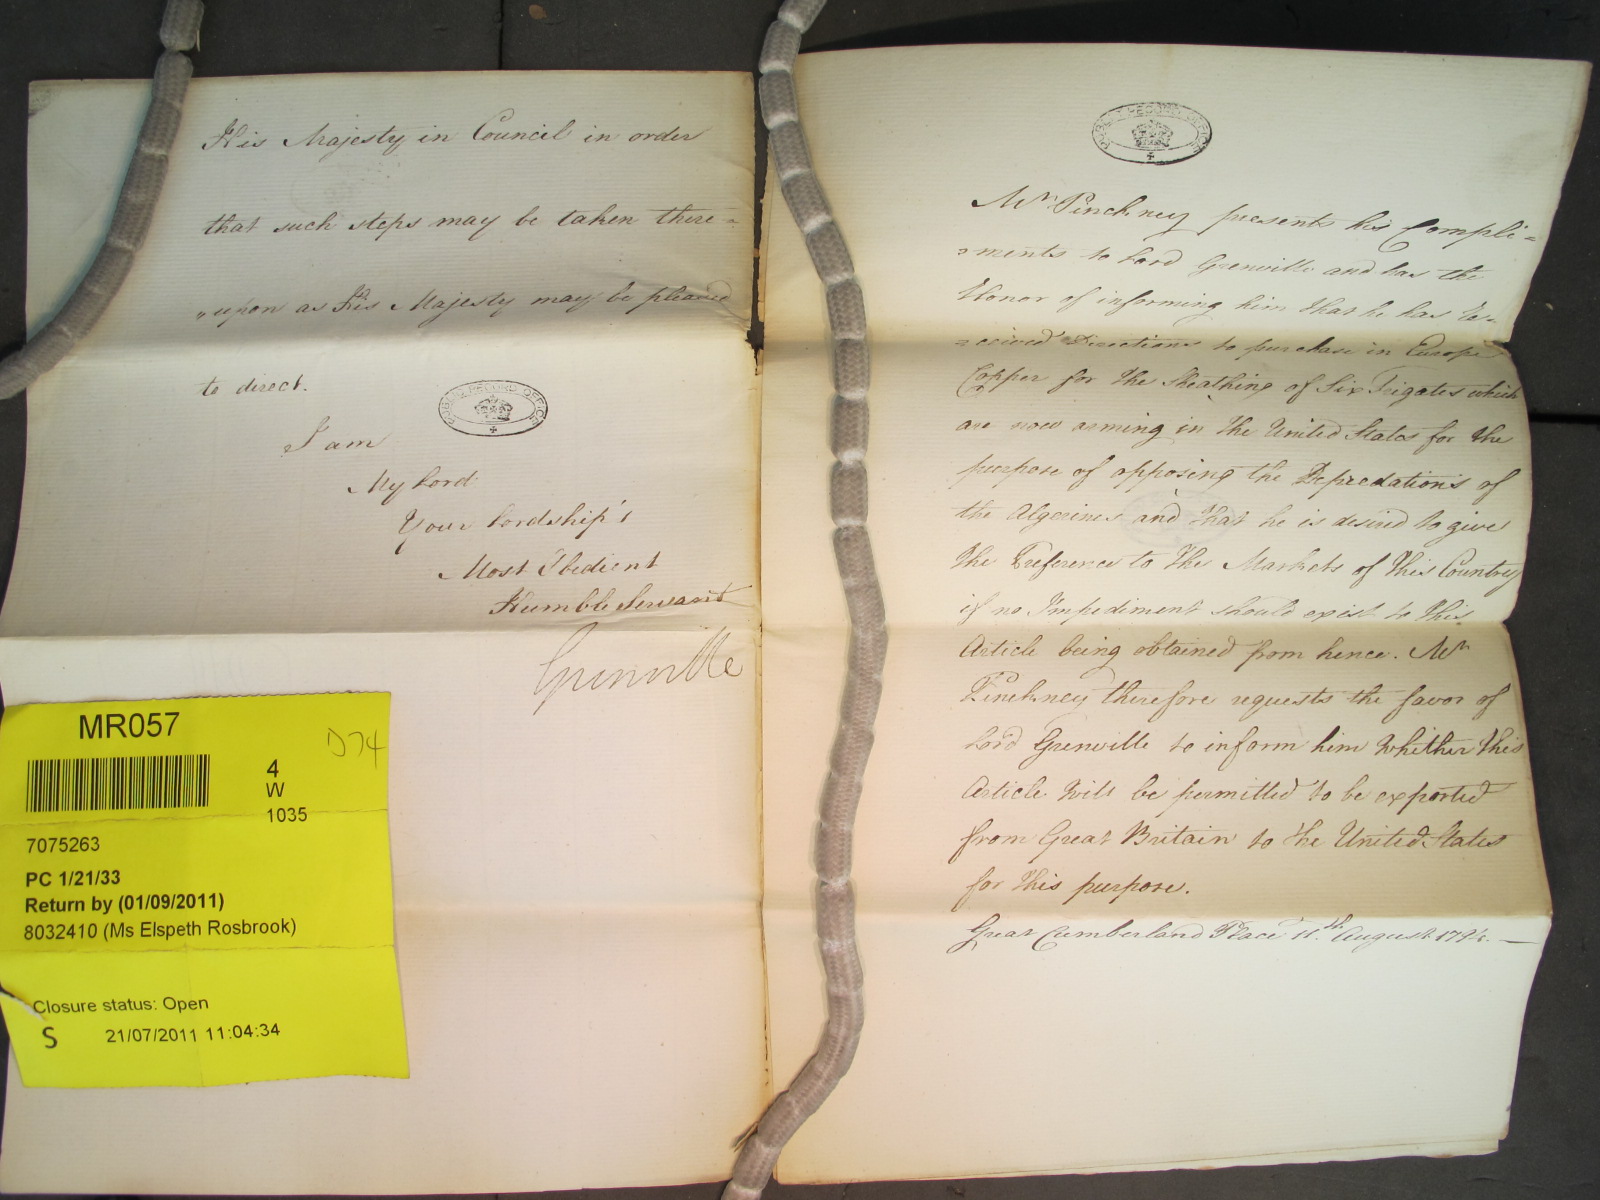 His Majesty in Council in order
that such steps may be taken there=
"upon as His Majesty may be pleased
to direct.
PUBLIC RECORD OFFICE
I am
My Lord
Your Lordship's
Most Obedient
Humble Servant
Grenville
MR057
D74
4
W
1035
7075263
PC 1/21/33
Return by (01/09/2011)
8032410 (Ms Elspeth Rosbrook)
Closure status: Open
S 21/07/2011 11:04:34
PUBLIC RECORD OFFICE
Mr. Pinckney presents his Compli=
=ments to Lord Grenville and has the
Honor of informing him that he has re-
=ceived Directions to purchase in Europe
Copper for the Sheathing of Six Frigates which
are now arming in the United States for the
purpose of opposing the Depredations of
the Algerines and that he is desired to give
the Preference to the Markets of this Country
if no Impediment should exist to this
Article being obtained from hence. Mr.
Pinckney therefore requests the favor of
Lord Grenville to inform him whether this
Article will be permitted to be exported
from Great Britain to the United States
for this purpose.
Great Cumberland Place 11th. August 1794. —